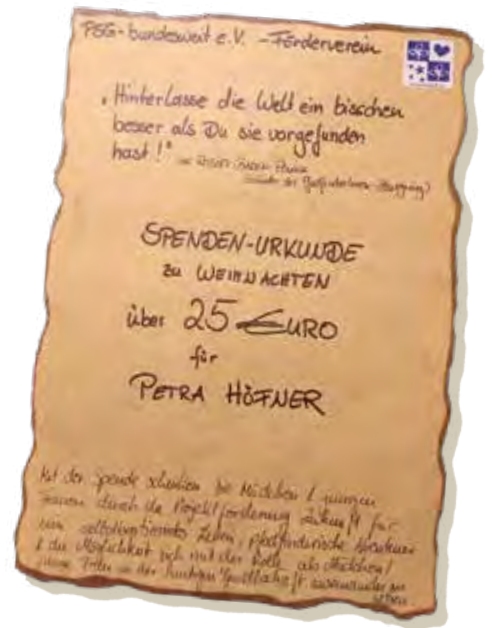 PSG-bundesweit e.V. - Förderverein
„Hinterlasse die Welt ein bisschen
besser als Du sie vorgefunden
hast!"
SPENDEN-URKUNDE
zu WEIHNACHTEN
über 25 EURO
für
PETRA HÖFNER
Mit der Spende schenken Sie Mädchen & jungen
Frauen durch die Projektförderung Zukunft für
ein selbstbestimmtes Leben, pfadfinderische Abenteuer
& die Möglichkeit sich mit der Rolle als Mädchen/
junge Frau in der heutigen Gesellschaft auseinander zu
setzen.